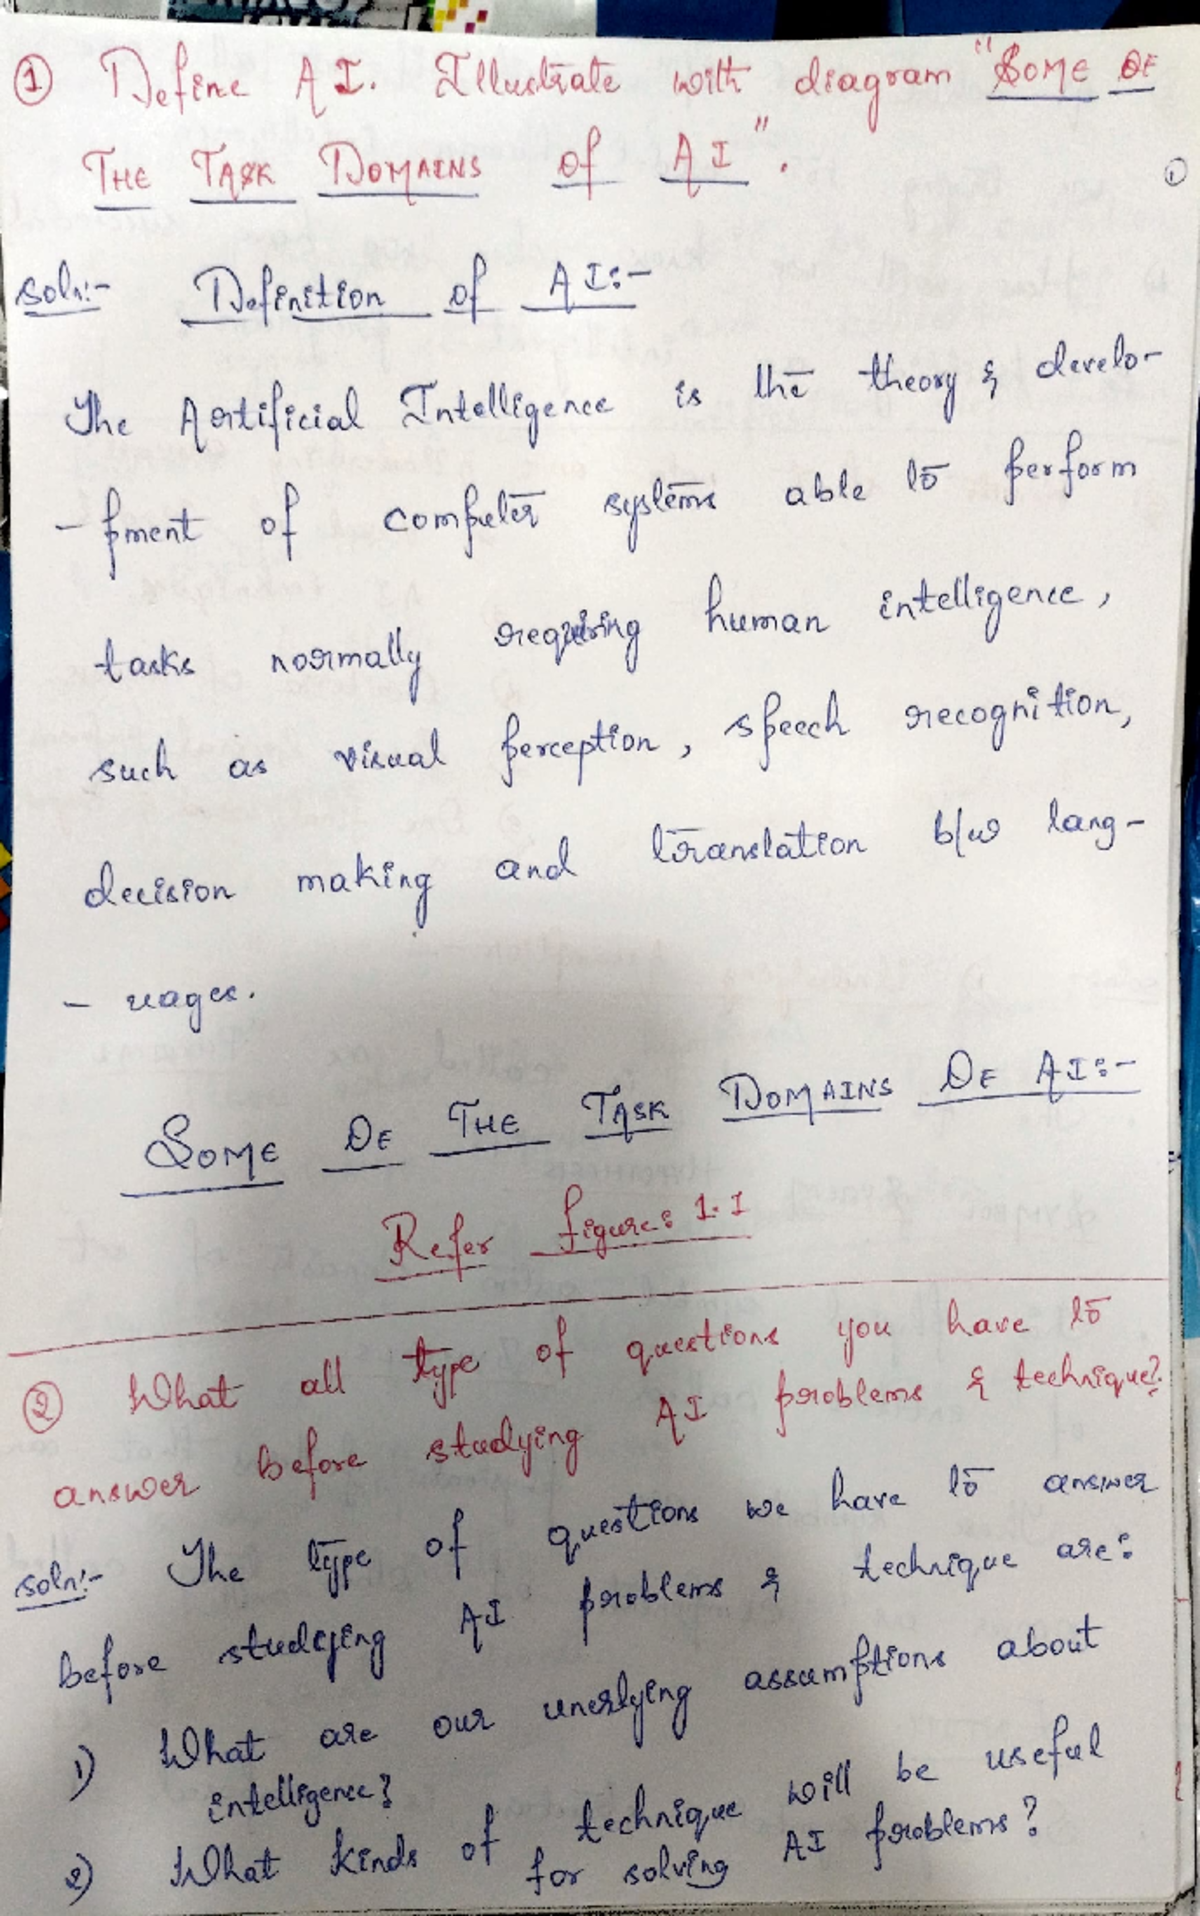 ① Define AI. Illustrate with diagram "SOME OF
THE TASK DOMAINS of AI".
①
Soln:- Definition of AI:-
The Artificial Intelligence is the theory & develo-
- pment of computer systems able to perform
tasks normally requiring human intelligence,
such as visual perception, speech recognition,
decision making and translation b/w lang-
- uages.
SOME OF THE TASK DOMAINS OF AI:-
Refer figure: 1.1
② What all type of questions you have to
answer before studying AI problems & technique?
soln:- The type of questions we have to answer
before studying AI problems & technique are:
1) What are our unerlying assumptions about
intelligence?
2) What kinds of technique will be useful
for solving AI problems?